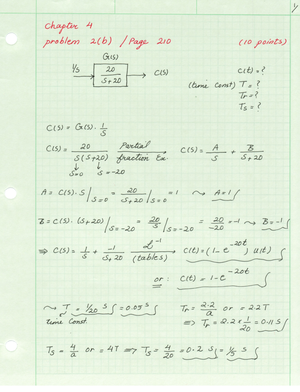 Y
Chapter 4
problem 2(b) / Page 210 (10 points)
G(s)
1/s → 20/(s+20) → C(s)
C(t) = ?
(time const) T = ?
Tr = ?
Ts = ?
C(s) = G(s) · 1/s
C(s) = 20/(s(s+20)) Partial fraction Ex. → C(s) = A/s + B/(s+20)
s=0 s=-20
A = C(s)·s |s=0 = 20/(s+20) |s=0 = 1 ⤳ A=1
B = C(s)·(s+20) |s=-20 = 20/s |s=-20 = 20/-20 = -1 ⤳ B=-1
⇒ C(s) = 1/s + -1/(s+20) L⁻¹ (tables) → C(t) = (1-e^-20t) u(t)
or : C(t) = 1-e^-20t
⤳ T = 1/20 s = 0.05 s
time const.
Tr = 2.2/a or = 2.2T
⇒ Tr = 2.2 × 1/20 = 0.11 s
Ts = 4/a or = 4T ⇒ Ts = 4/20 = 0.2 s = 1/5 s